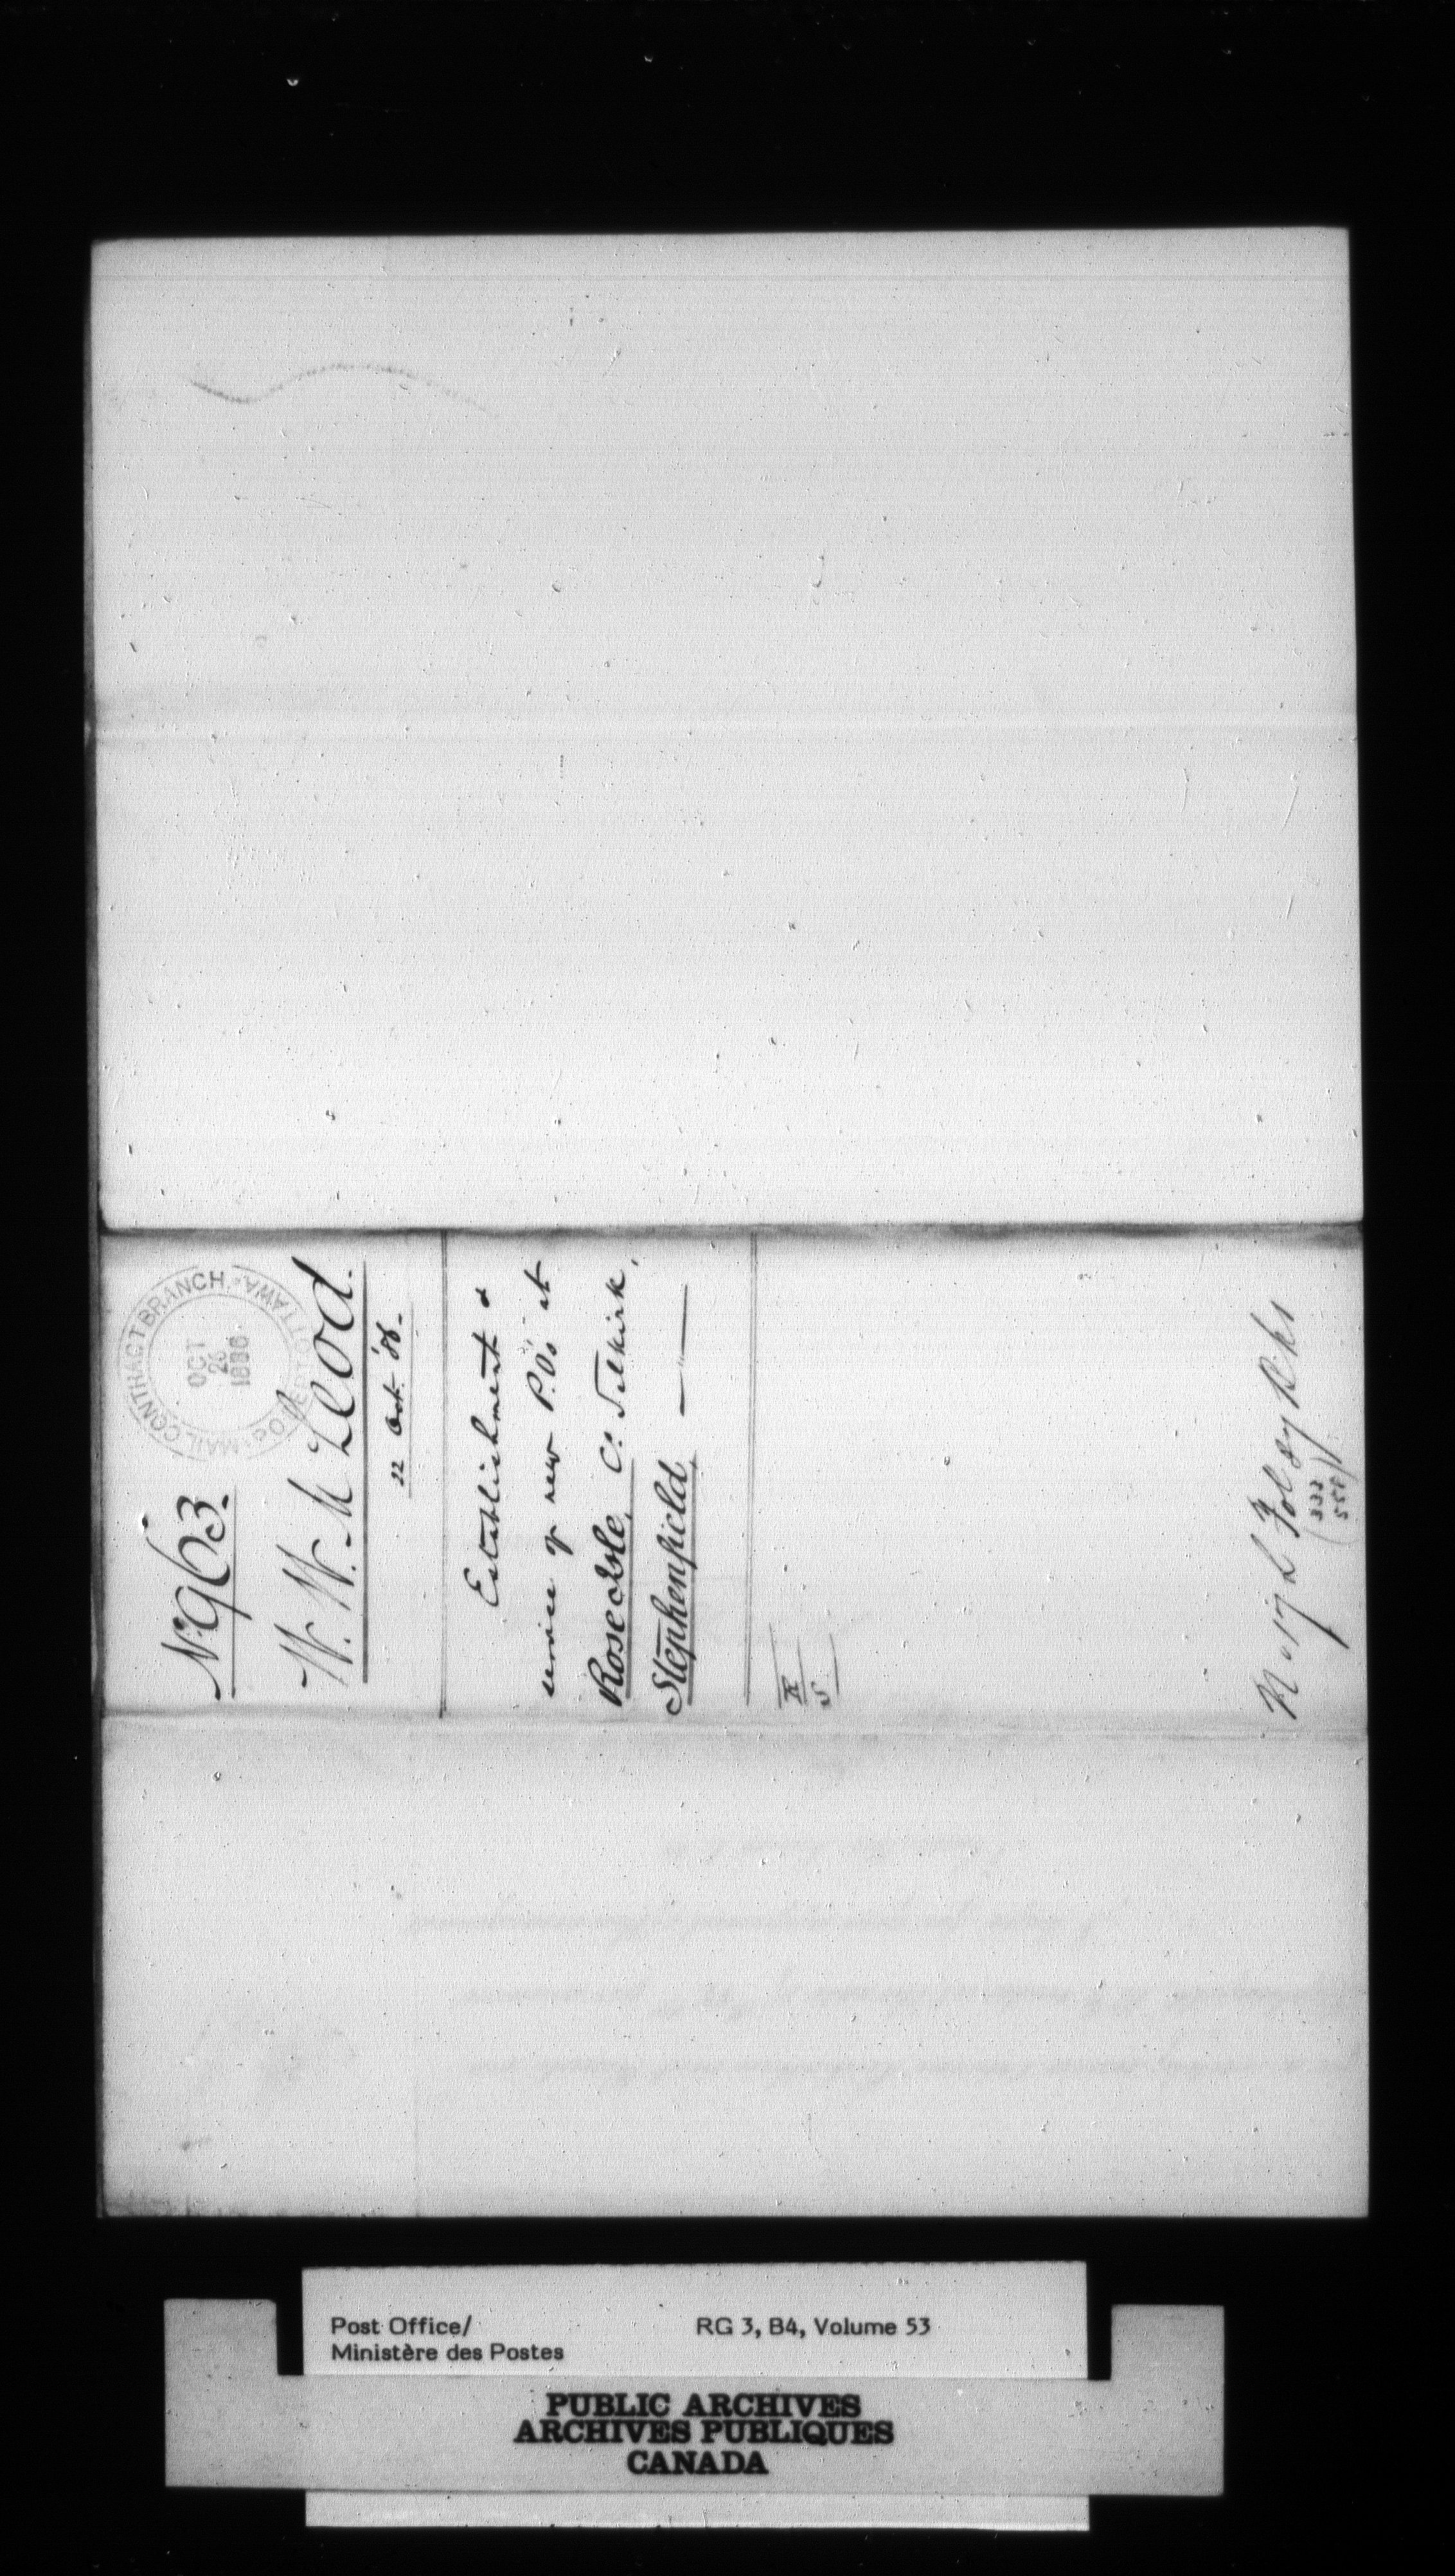 No 963.
MAIL CONTRACT BRANCH.
P.O. DEPT OTTAWA.
OCT
23
1886
W. W. McLeod.
22 Oct. '86.
Establishment &
service of new P.O's at
Rosedale, Co. Selkirk,
Stephenfield, — " —
5
(333
555)
Post Office/
Ministère des Postes
RG 3, B4, Volume 53
PUBLIC ARCHIVES
ARCHIVES PUBLIQUES
CANADA